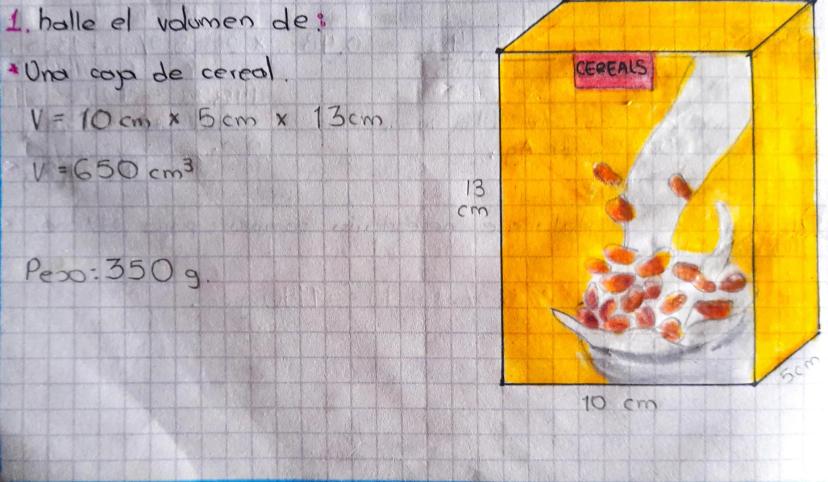 1. halle el volumen de:
*Una caja de cereal.
V = 10 cm x 5 cm x 13 cm
V = 650 cm³
Peso: 350 g.
CEREALS
13
cm
5cm
10 cm